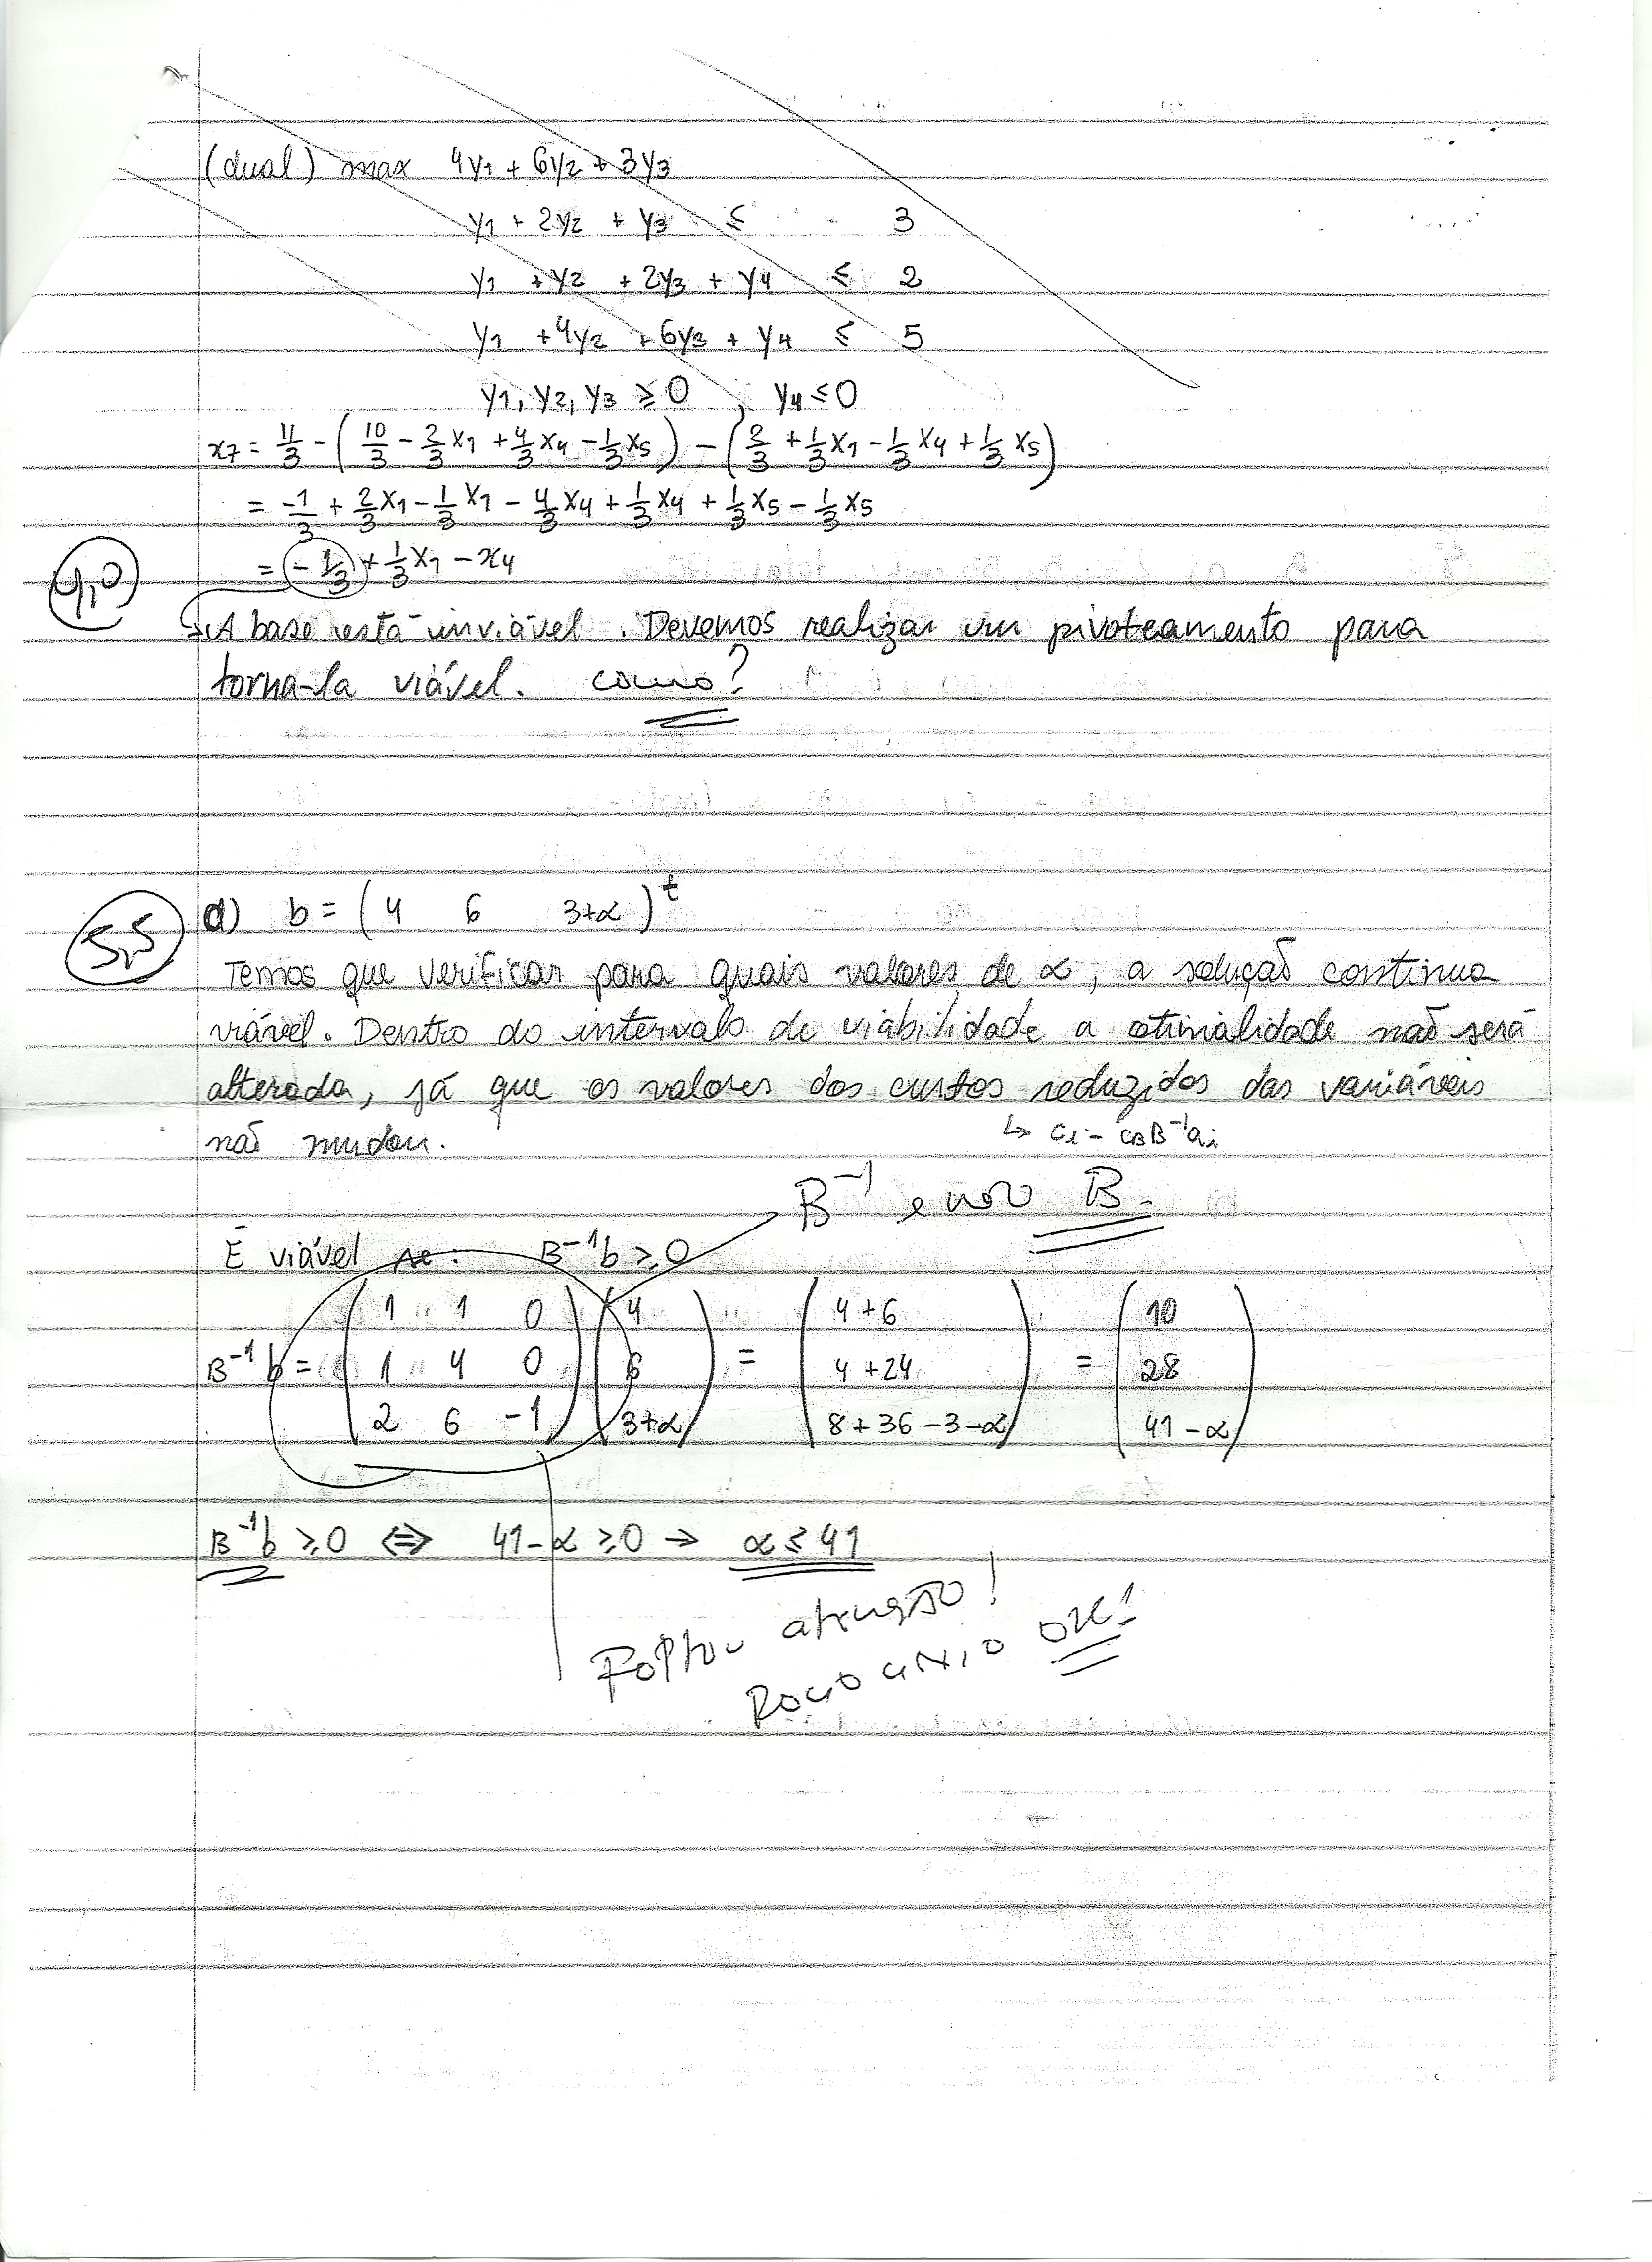 (dual) max 4y1 + 6y2 + 3y3
y1 + 2y2 + y3 ≤ 3
y1 + y2 + 2y3 + y4 ≤ 2
y1 + 4y2 + 6y3 + y4 ≤ 5
y1, y2, y3 ≥ 0 , y4 ≤ 0
x7 = 11/3 - (10/3 - 2/3 x1 + 4/3 x4 - 1/3 x5) - (2/3 + 1/3 x1 - 1/3 x4 + 1/3 x5)
= -1/3 + 2/3 x1 - 1/3 x1 - 4/3 x4 + 1/3 x4 + 1/3 x5 - 1/3 x5
4,0 = -1/3 + 1/3 x1 - x4
→ A base está inviável. Devemos realizar um pivoteamento para
torna-la viável. como?
5,5 d) b = (4 6 3+α)^t
Temos que verificar para quais valores de α, a solução continua
viável. Dentro do intervalo de viabilidade a otimalidade não será
alterada, já que os valores dos custos reduzidos das variáveis
não mudam. ↳ ci - cB B^-1 ai
B^-1 e não B.
É viável se: B^-1 b ≥ 0
B^-1 b = (1 1 0) (4) = (4+6) = (10)
(1 4 0) (6) (4+24) (28)
(2 6 -1) (3+α) (8+36-3-α) (41-α)
B^-1 b ≥ 0 ⇔ 41-α ≥ 0 → α ≤ 41
Faltou atenção!
Raciocínio OK!